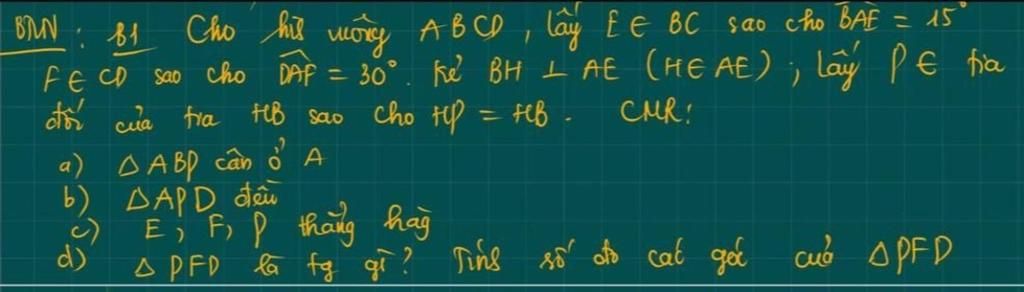 BTVN : B1 Cho hìh vuông ABCD, lấy E ∈ BC sao cho BAE = 15°
F ∈ CD sao cho DAF = 30°. Kẻ BH ⊥ AE (H ∈ AE) ; lấy P ∈ tia
đối của tia HB sao cho HP = HB. CMR:
a) △ABP cân ở A
b) △APD đều
c) E, F, P thẳng hàg
d) △PFD là tg gì? Tính số đo các góc của △PFD